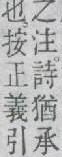 之注詩猶承
也按正義引